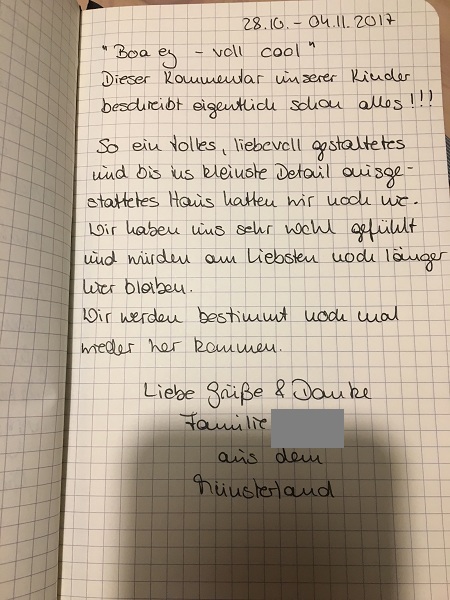 28.10. - 04.11.2017
"Boa ey - voll cool"
Dieser Kommentar unserer Kinder
beschreibt eigentlich schon alles!!!
So ein tolles, liebevoll gestaltetes
und bis ins kleinste Detail ausge-
stattetes Haus hatten wir noch nie.
Wir haben uns sehr wohl gefühlt
und würden am Liebsten noch länger
hier bleiben.
Wir werden bestimmt noch mal
wieder her kommen.
Liebe Grüße & Danke
Familie
aus dem
Münsterland